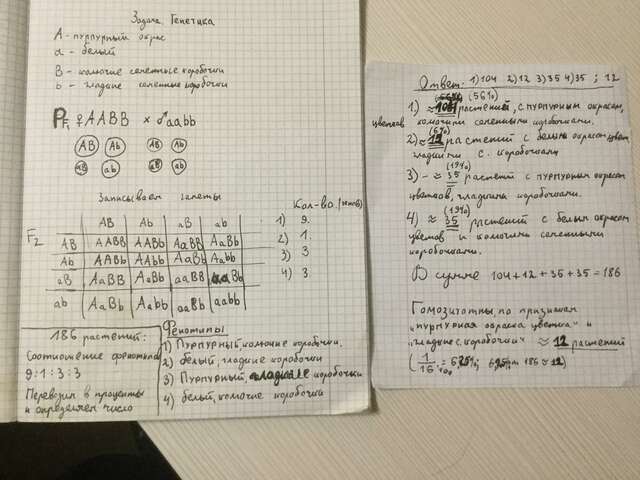 Задача. Генетика
A - пурпурный окрас
a - белый
B - колючие семенные коробочки
b - гладкие семенные коробочки
P ♀AABB × ♂aabb
F₁
AB Ab aB ab
Записываем гаметы
Кол-во
F₂
AB Ab aB ab
AB AABB AABb AaBB AaBb
Ab AABb AAbb AaBb Aabb
aB AaBB AaBb aaBB aaBb
ab AaBb Aabb aaBb aabb
1) 9.
2) 1.
3) 3
4) 3.
186 растений:
Соотношение фенотипов
9:1:3:3
Переведём в проценты
и определяем число
Фенотипы
1) Пурпурный, колючие коробочки.
2) белый, гладкие коробочки
3) Пурпурный, гладкие коробочки
4) белый, колючие коробочки
Ответ: 1)104 2)12 3)35 4)35 ; 12
(56%)
1) ≈ 104 растений, с пурпурным окрасом,
цветков колючими семенными коробочками.
(6%)
2) ≈ 12 растений с белым окрасом цвет.
гладкими с. коробочками
(19%)
3) - ≈ 35 растений с пурпурным окрасом
цветков, гладкими коробочками.
(19%)
4) ≈ 35 растений с белым окрасом
цветков и колючими семенными
коробочками.
В сумме 104+12+35+35=186
Гомозиготны, по признакам
"пурпурная окраска цветка" и
"гладкие с. коробочки" ≈ 12 растений
(1/16 = 6,25%; 6,25% от 186 ≈ 12)